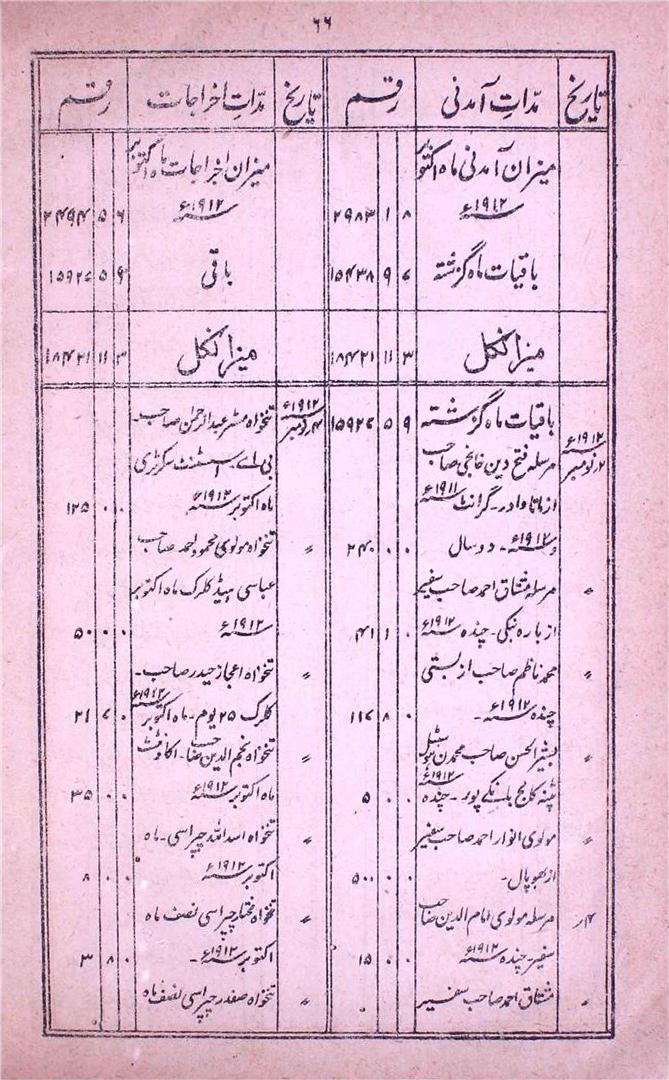 ۶۶
تاریخ | مدّاتِ آمدنی | رقم | تاریخ | مدّاتِ اخراجات | رقم
میزان آمدنی ماہ اکتوبر | میزان اخراجات ماہ اکتوبر
۱۹۱۲ء | ۸ ۱ ۲۹۸۳ | ۱۹۱۲ء | ۶ ۵ ۲۴۹۴
باقیات ماہ گزشتہ | ۷ ۹ ۱۵۴۳۸ | باقی | ۹ ۵ ۱۵۹۲۷
میزان کل | ۳ ۱۱ ۱۸۴۲۱ | میزان کل | ۳ ۱۱ ۱۸۴۲۱
باقیات ماہ گزشتہ | ۹ ۵ ۱۵۹۲۷ | ۴ نومبر ۱۹۱۲ء | تنخواہ مسٹر عبدالرحمٰن صاحب۔
۲ نومبر ۱۹۱۲ء | مرسلہ فتح دین خانجی صاحب | بی اے۔ اسسٹنٹ سکرٹری
از ماناوادر۔ گرانٹ ۱۹۱۱ء | ماہ اکتوبر ۱۹۱۲ء | ۰ ۰ ۱۲۵
و ۱۹۱۲ء۔ دو سال | ۰ ۰ ۲۴۰ | 〃 | تنخواہ مولوی محمود احمد صاحب
〃 | مرسلہ مشتاق احمد صاحب سفیر | عباسی ہیڈ کلرک ماہ اکتوبر
از بارہ بنکی۔ چندہ ۱۹۱۲ء | ۰ ۱ ۴۱ | ۱۹۱۲ء | ۰ ۰ ۵۰
〃 | محمد ناظم صاحب از بستی | 〃 | تنخواہ اعجاز حیدر صاحب۔
چندہ ۱۹۱۲ء۔ | ۰ ۸ ۱۱۷ | کلرک ۲۵ یوم۔ ماہ اکتوبر ۱۹۱۲ء | ۰ ۷ ۲۱
〃 | بشیر الحسن صاحب محمڈن ہوسٹل | 〃 | تنخواہ نجم الدین صاحب۔ اکاونٹنٹ
پٹنہ کالج بانکے پور۔ چندہ ۱۹۱۲ء | ۰ ۰ ۵ | ماہ اکتوبر ۱۹۱۲ء | ۰ ۰ ۳۵
〃 | مولوی انوار احمد صاحب سفیر | 〃 | تنخواہ اسد اللہ چپراسی۔ ماہ
از بھوپال۔ | ۰ ۰ ۵۰۰ | اکتوبر ۱۹۱۲ء | ۰ ۰ ۸
۴ر | مرسلہ مولوی امام الدین صاحب | 〃 | تنخواہ مختار چپراسی نصف ماہ
سفیر۔ چندہ ۱۹۱۲ء | ۰ ۰ ۱۵ | اکتوبر ۱۹۱۲ء۔ | ۰ ۸ ۳
〃 | مشتاق احمد صاحب سفیر | 〃 | تنخواہ صفدر چپراسی نصف ماہ